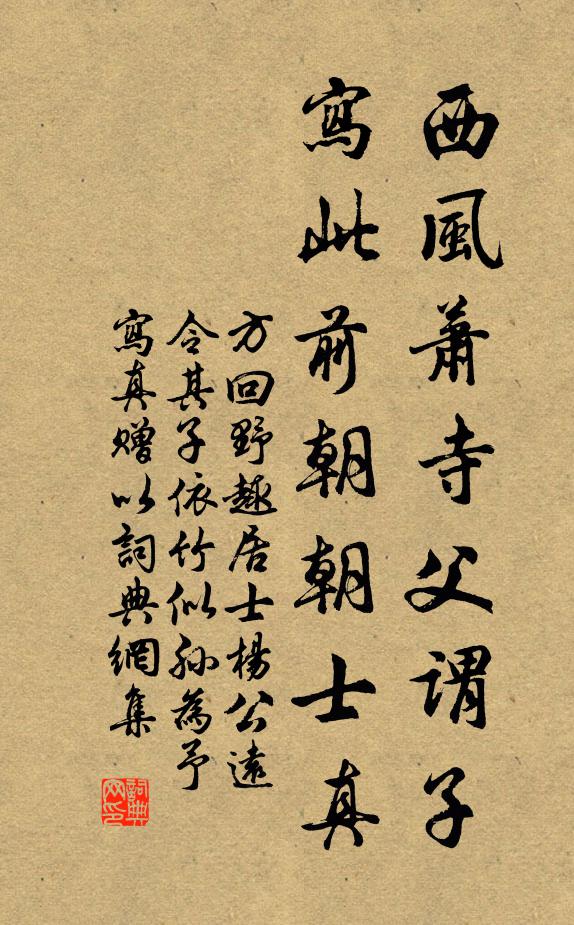 西風蕭寺父謂子
寫此前朝朝士真
方回野趣居士楊公遠
令其子依竹似孙為予
寫真贈以詞典網集
詞典
网印